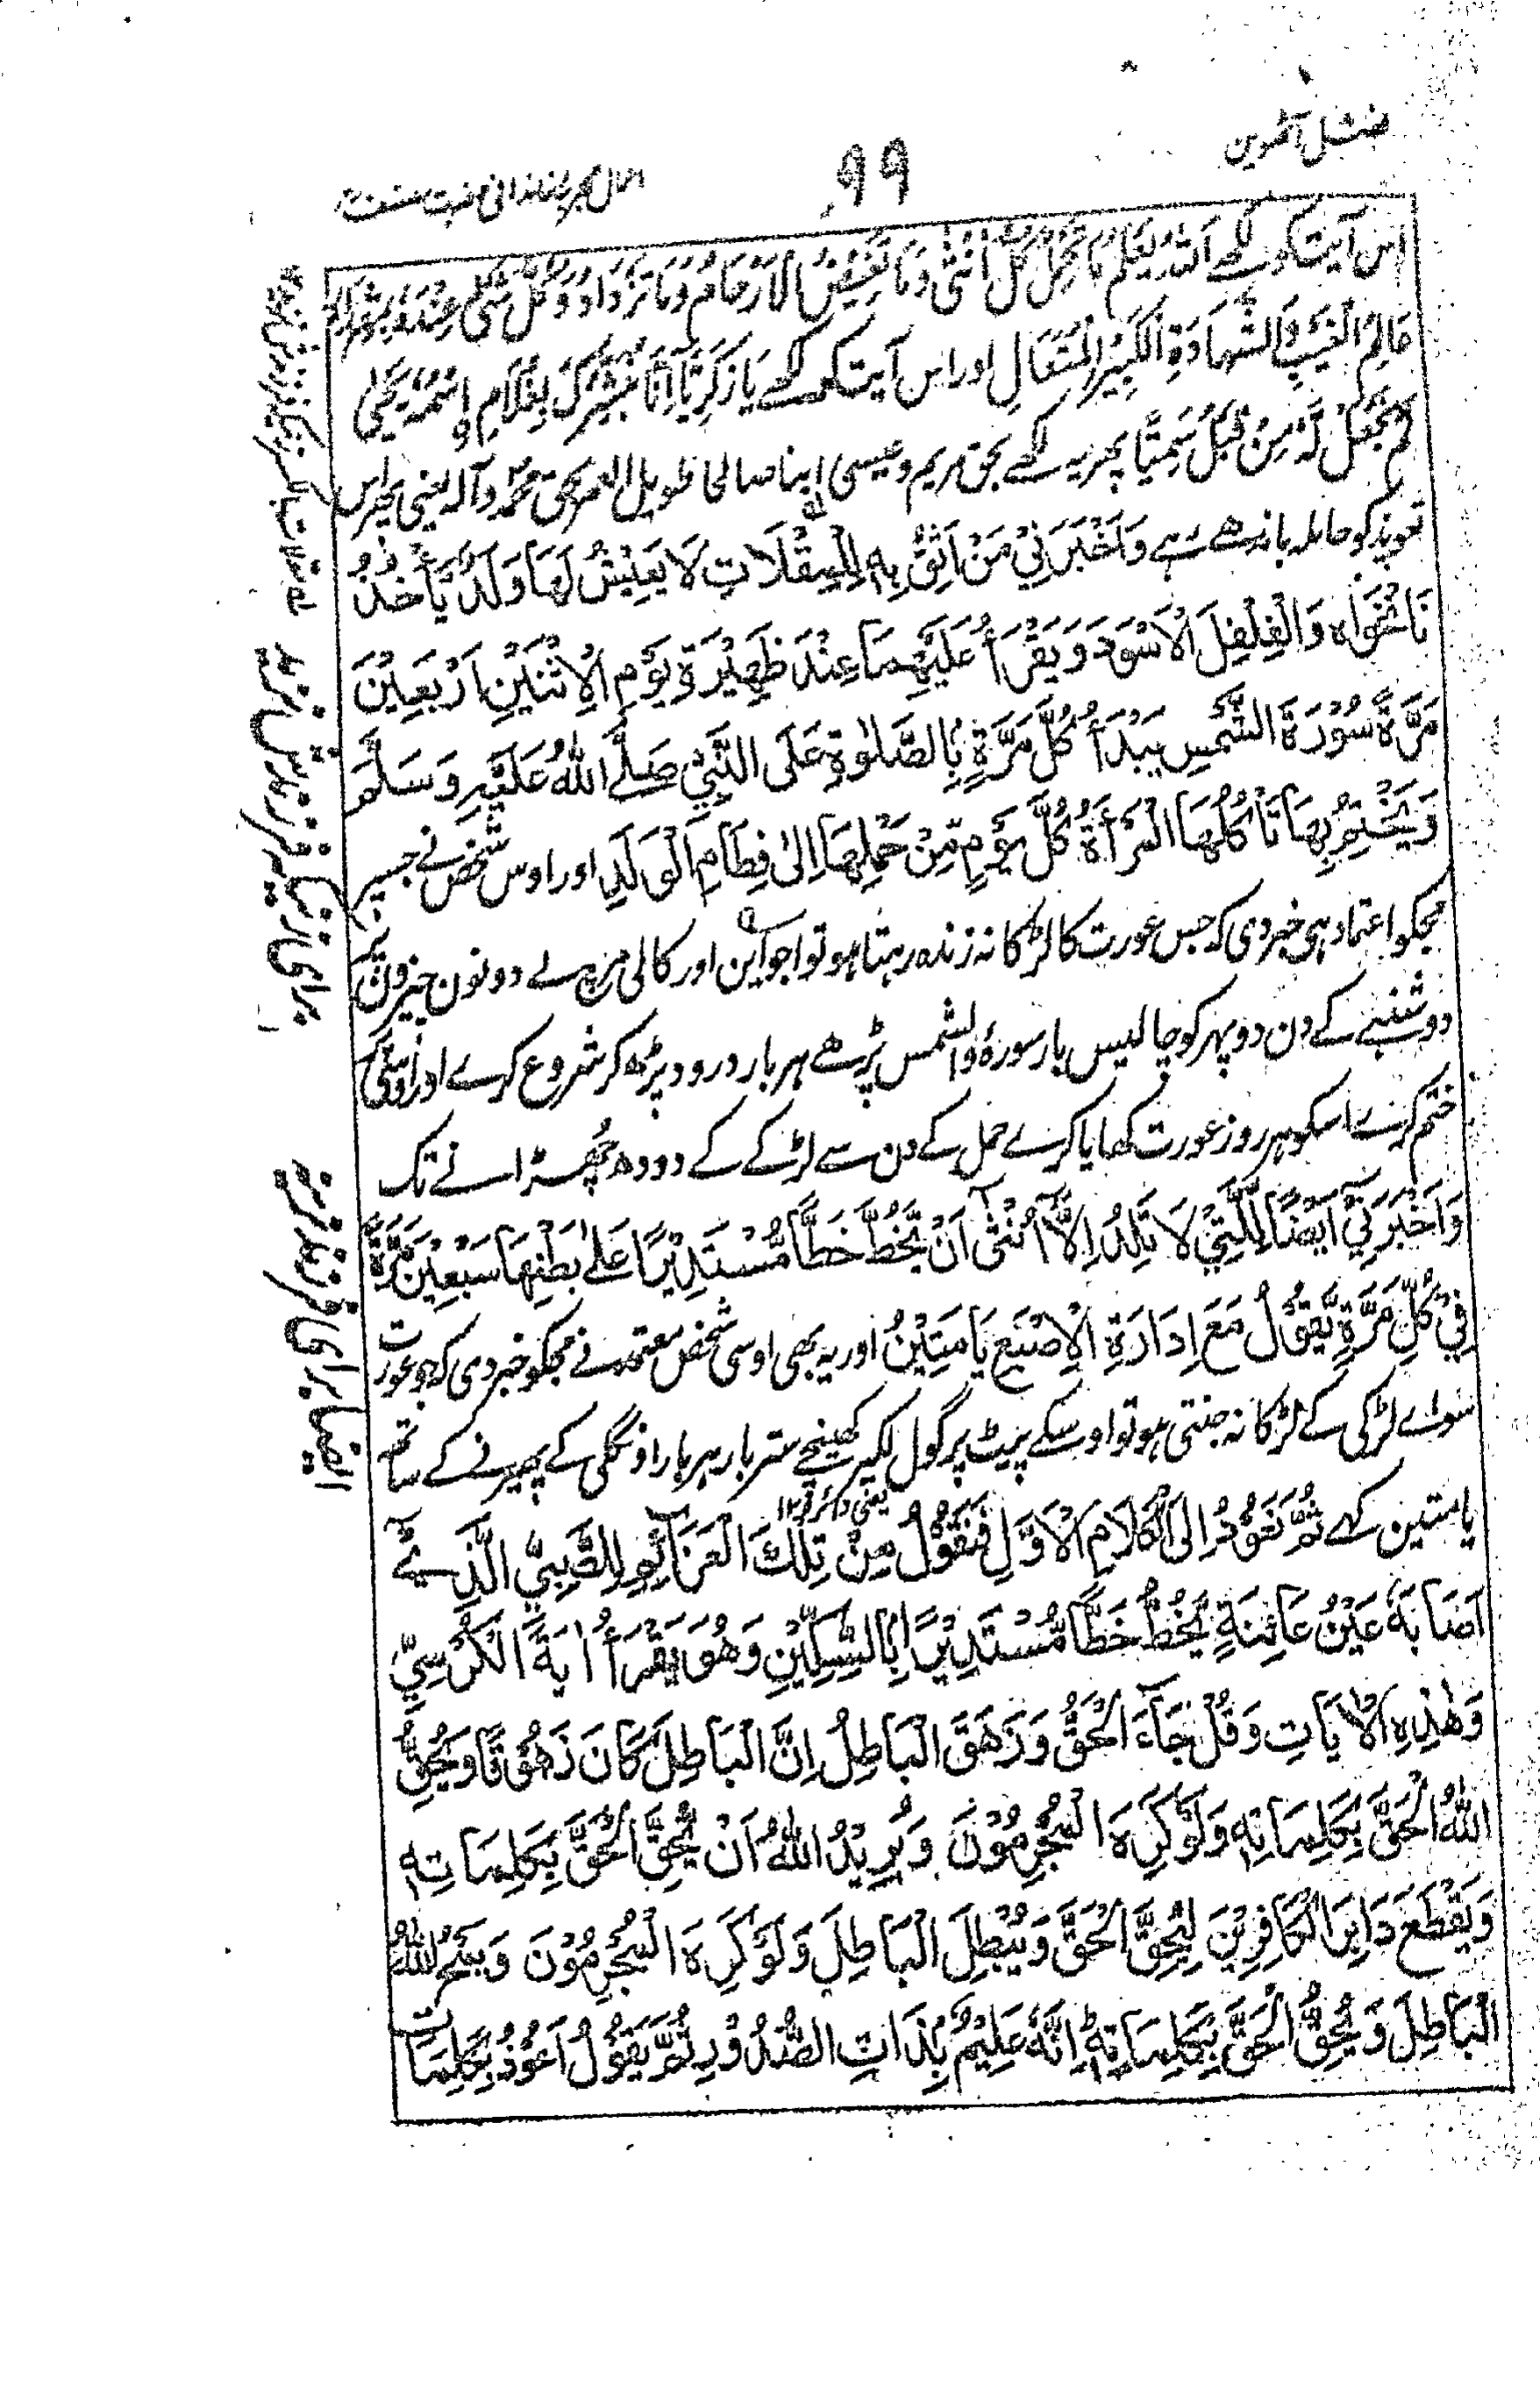 فصل آٹھوین
۹۹
اس آیت کو لکھے اَللّٰهُ يَعْلَمُ مَا تَحْمِلُ كُلُّ اُنْثٰى وَمَا تَغِيْضُ الْاَرْحَامُ وَمَا تَزْدَادُ وَكُلُّ شَيْءٍ عِنْدَهٗ بِمِقْدَارٍ
عَالِمُ الْغَيْبِ وَالشَّهَادَةِ الْكَبِيْرُ الْمُتَعَالِ اور اس آیت کو لکھے يَا زَكَرِيَّا اِنَّا نُبَشِّرُكَ بِغُلَامٍ اسْمُهٗ يَحْيٰى
لَمْ نَجْعَلْ لَّهٗ مِنْ قَبْلُ سَمِيًّا پھر یہ لکھے بحق مریم و عیسی ابنا صالحا طویل العمر بحق محمد و آلہ یعنی پھر اس
تعویذ کو حاملہ باندھے رہے وَاَخْبَرَنِيْ مَنْ اَثِقُ بِهٖ لِلْمِقْلَاتِ لَا يَعِيْشُ لَهَا وَلَدٌ يَّأْخُذُ
نَانْخَوَاه وَالْفِلْفِلَ الْاَسْوَدَ وَيَقْرَأُ عَلَيْهِمَا عِنْدَ ظَهِيْرَةِ يَوْمِ الْاِثْنَيْنِ اَرْبَعِيْنَ
مَرَّةً سُوْرَةَ الشَّمْسِ يَبْدَأُ كُلَّ مَرَّةٍ بِالصَّلٰوةِ عَلَى النَّبِيِّ صَلَّى اللّٰهُ عَلَيْهِ وَسَلَّمَ
وَيَخْتِمُ بِهَا تَأْكُلُهَا الْمَرْأَةُ كُلَّ يَوْمٍ مِّنْ حَمْلِهَا اِلٰى فِطَامِ الْوَلَدِ اور اوس شخص نے جسپر
مجکو اعتماد ہی خبر دی کہ جس عورت کا لڑکا نہ زندہ رہتا ہو تو اجواین اور کالی مرچ لے دونون چیزون پر
دوشنبے کے دن دوپہر کو چالیس بار سورۂ والشمس پڑھے ہر بار درود پڑھ کر شروع کرے اور اوسی پر
ختم کرے اسکو ہر روز عورت کھایا کرے حمل کے دن سے لڑکے کے دودھ چھڑانے تک
وَاَخْبَرَنِيْ اَيْضًا لِلَّتِيْ لَا تَلِدُ اِلَّا اُنْثٰى اَنْ تَخُطَّ خَطًّا مُّسْتَدِيْرًا عَلٰى بَطْنِهَا سَبْعِيْنَ مَرَّةً
فِيْ كُلِّ مَرَّةٍ يَّقُوْلُ مَعَ اِدَارَةِ الْاِصْبَعِ يَا مَتِيْنُ اور یہ بھی اوسی شخص معتمد نے مجکو خبر دی کہ جو عورت
سواے لڑکی کے لڑکا نہ جنتی ہو تو اوسکے پیٹ پر گول لکیر کھینچے ستر بار ہر بار اونگلی کے پھیرنے کے ساتھ
یعنی دائرہ ۱۲
یا متین کہے ثُمَّ نَعُوْدُ اِلَى الْكَلَامِ الْاَوَّلِ فَنَقُوْلُ مِنْ تِلْكَ الْعَزَائِمِ لِلصَّبِيِّ الَّذِيْ
اَصَابَهٗ عَيْنُ عَائِنَةٍ يَخُطُّ خَطًّا مُّسْتَدِيْرًا بِالسِّكِّيْنِ وَهُوَ يَقْرَأُ اٰيَةَ الْكُرْسِيِّ
وَهٰذِهِ الْاٰيَاتِ وَقُلْ جَآءَ الْحَقُّ وَزَهَقَ الْبَاطِلُ اِنَّ الْبَاطِلَ كَانَ زَهُوْقًا وَيُحِقُّ
اللّٰهُ الْحَقَّ بِكَلِمَاتِهٖ وَلَوْ كَرِهَ الْمُجْرِمُوْنَ وَيُرِيْدُ اللّٰهُ اَنْ يُّحِقَّ الْحَقَّ بِكَلِمَاتِهٖ
وَيَقْطَعَ دَابِرَ الْكَافِرِيْنَ لِيُحِقَّ الْحَقَّ وَيُبْطِلَ الْبَاطِلَ وَلَوْ كَرِهَ الْمُجْرِمُوْنَ وَيَمْحُ اللّٰهُ
الْبَاطِلَ وَيُحِقُّ الْحَقَّ بِكَلِمَاتِهٖ اِنَّهٗ عَلِيْمٌ بِذَاتِ الصُّدُوْرِ ثُمَّ يَقُوْلُ اَعُوْذُ بِكَلِمَاتِ
ایضا برای فرزند نرینہ